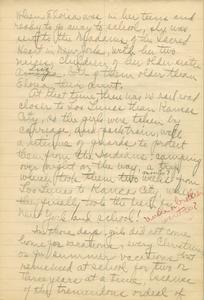 When Eloisa was in her teens and
ready to go away to school, she was
sent to the Madams of the Sacred
Heart in New York, with her two
nieces, children of her older sister
of them older than
Eloisa their aunt.
At this time there was no rail road
closer to Los Lunas than Kansas
City, so the girls were taken by
carriage, and pack train, with
a retinue of guards to protect
them from the Indians, camping
over night on the way, a trip
which took them two
Los Lunas to Kansas City, where
they finally took the train for
New York and school!
In those days, girls did not come
home for vacations, every Christmas
or for summer vacations, but
remained at school for two or
three years at a time, because
of the tremendous ordeal of